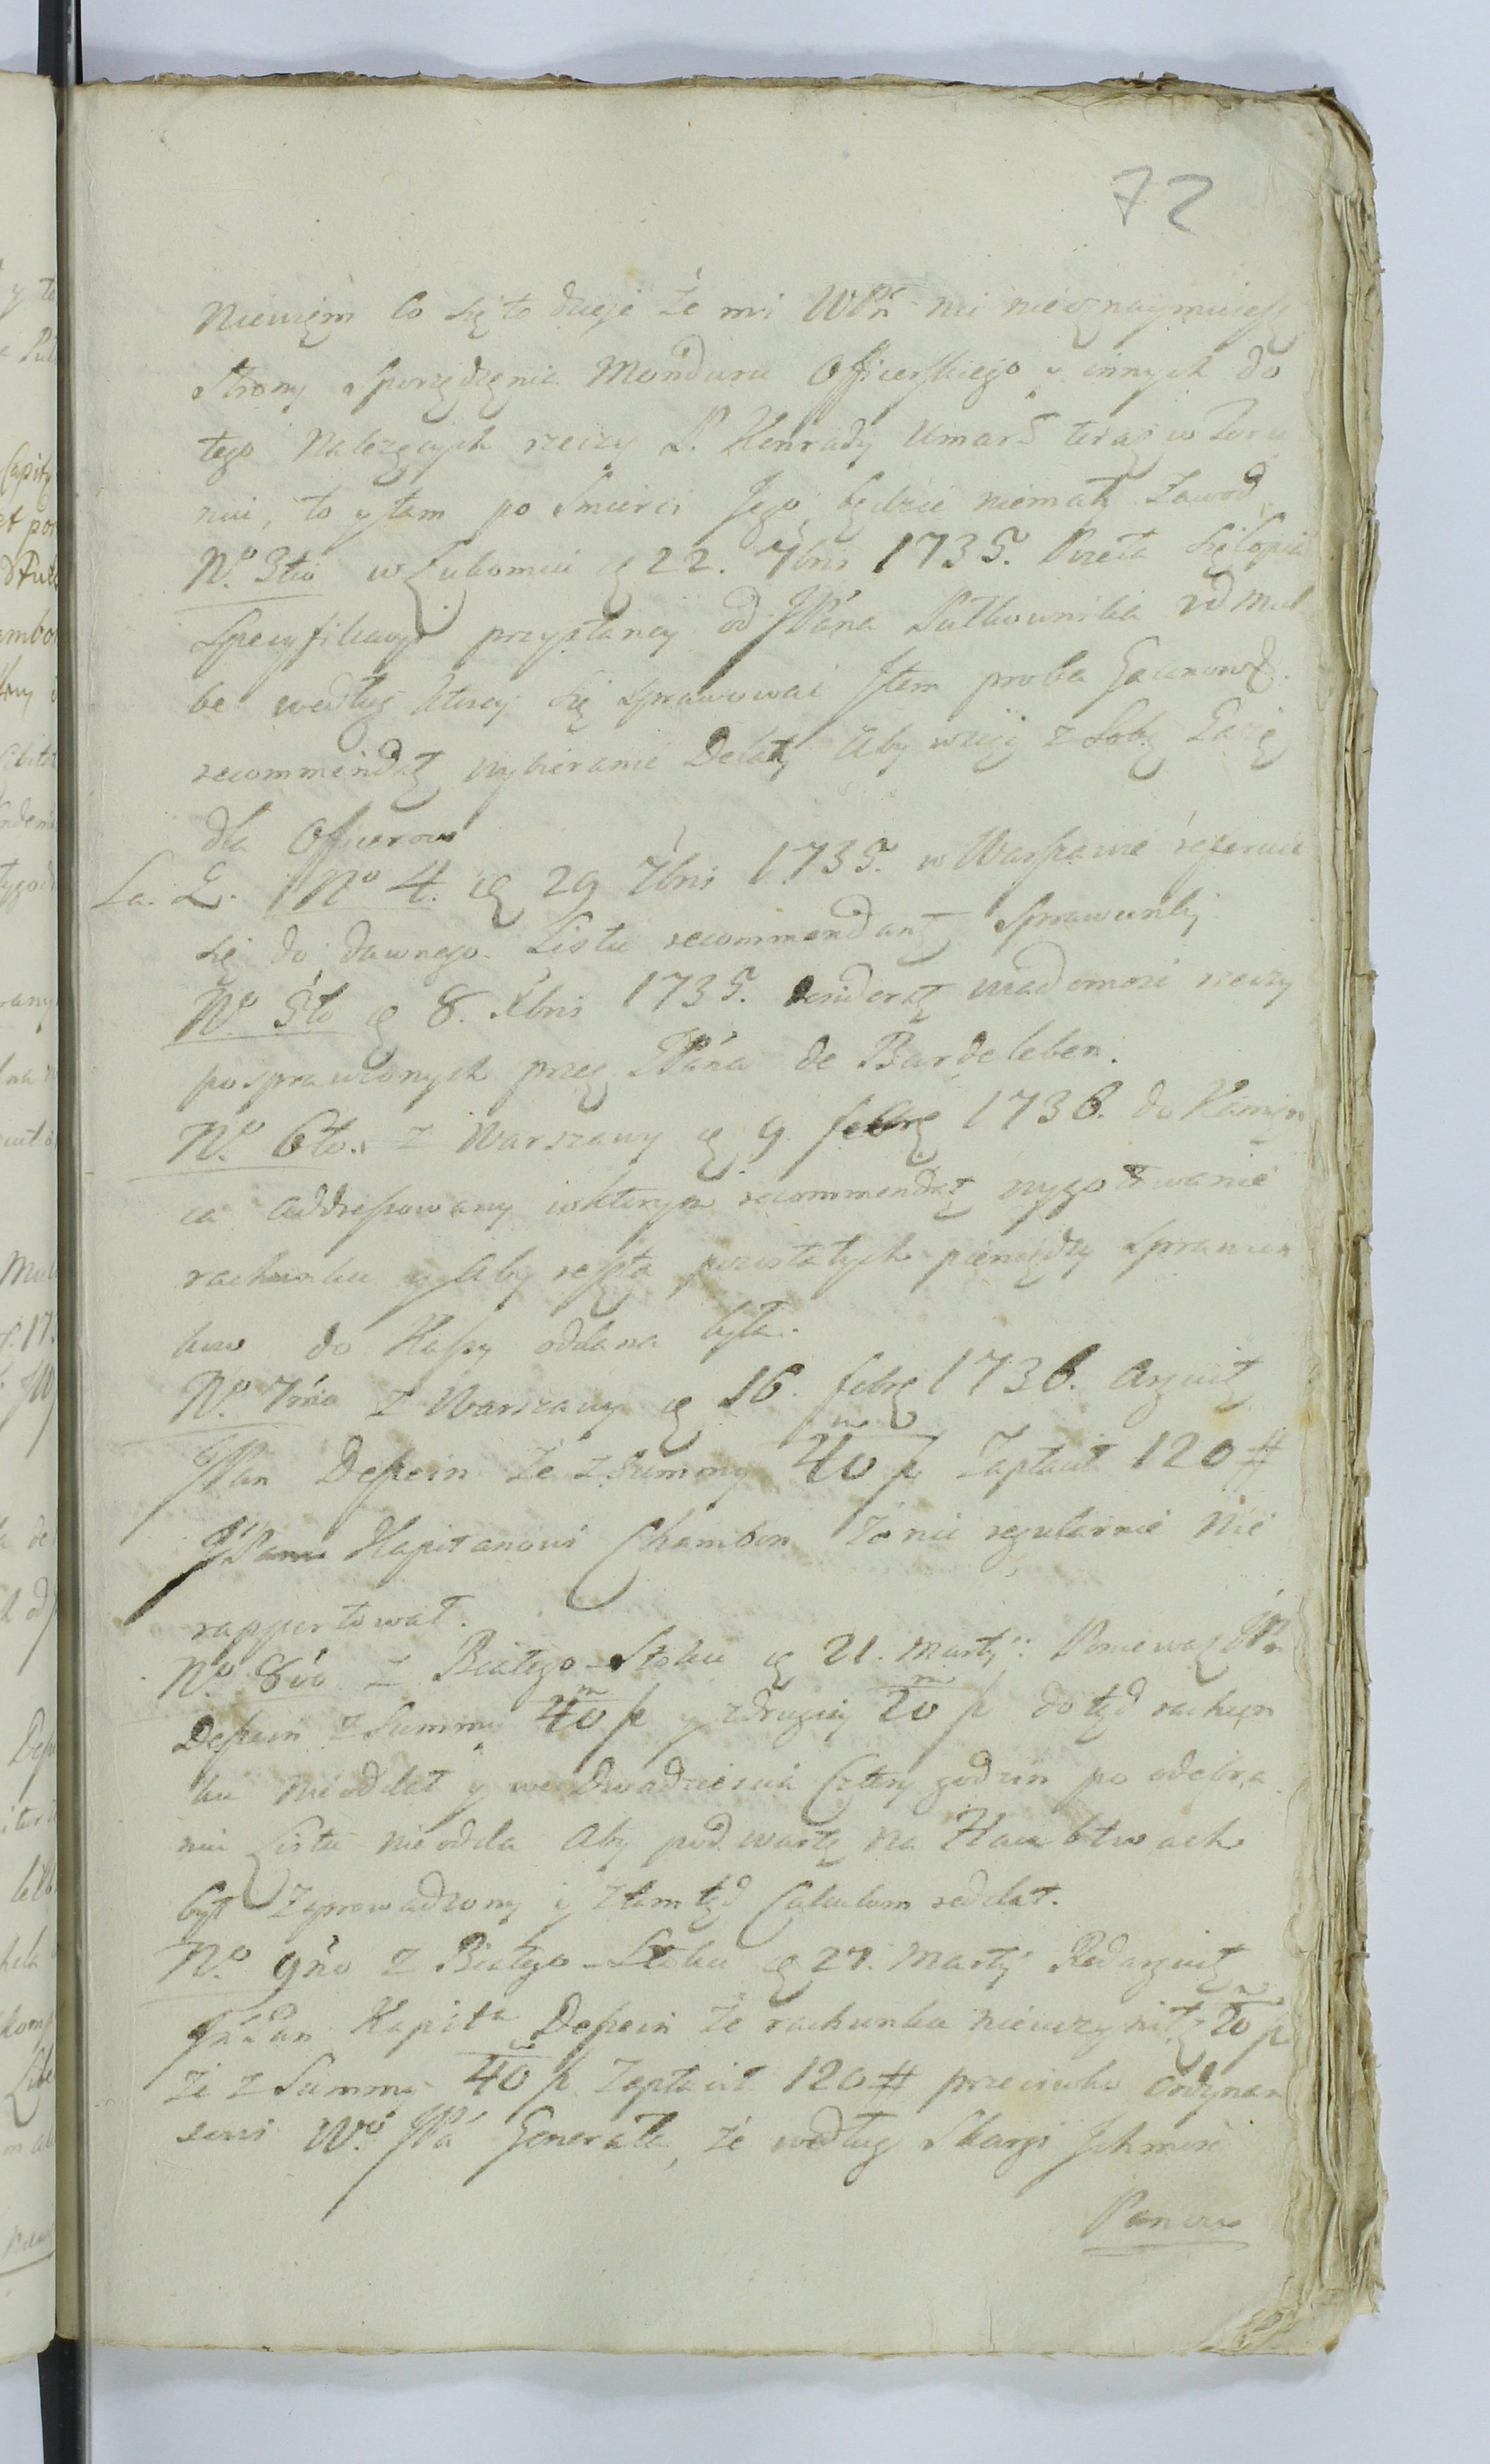 72
Niewięm co się to dzieje że mi WPn mi nieoznaymuiesz
strony sporządzęnia Monduru Officerskiego y innych do
tego Nalezących rzeczy P. Konrady Umarł teraz w Toru
niu, to y tam po Smierci Jego będzie niemały zawod
No. 3tio w Lubomiu d 22. 7bris 1735. Poseła się Copia
Specyfikacyi przysłaney od JPána Pułkownika
be według ktorey się sprawowac Jtem proba
recommendat wybieranie Delaty Aby wziął z Sobą Gażę
dla Officerow
La. L. No 4. d 29 7bris 1735. w Warszawie referuie
się do dawnego Listu recommendant sprawunky
No 5to d 8. Xbris 1735. desiderat wiadomosc rzeczy
posprawionych przez JPána de Bardeleben.
No. 6to. z Warszawy d 9 febr 1736. do Kamięn
ca addressowany w ktorym recommendat wygotowanie
rachunku y Aby reszta pozostałych pieniędzy sprawun
kow do Kassy oddana była.
No. 7mo z Warszawy d 16. febr 1736. Arguit
JPan Depein że z Summy 40 m p Zapłacił 120 #
JPanu Kapitanowi Chambon że nie regularnie Nie
rapportował.
No. 8vo z Białego-Stoku d 21. Martÿ: Poniewaz JPn
Depein z Summy 40 m p y z drugiey 20 m p do tąd rachun
ku nie oddał y we Dwadziescia Cztery godzin po odebra
niu Listu nie odda Aby pod wartę na Haubtwach
był zaprowadzony y z tamtąd Calculum reddat.
No. 9no z Białego-Stoku d 27. Martÿ Redarguit
JPan Kapita Depein że rachunku nie uczynił z 20 m p
że z Summy 40 m p Zapłacił 120 # przeciwko Ordynan
sowi Wo. JPá Generała, że według Skargi Jchmosc
Panow